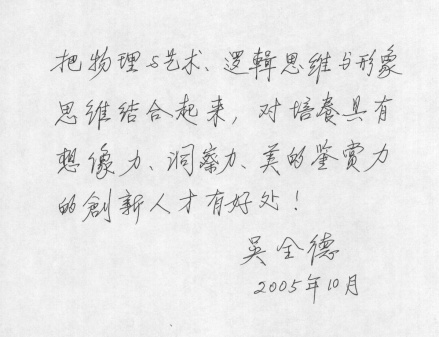 把物理与艺术、逻輯思维与形象
思维结合起来，对培養具有
想像力、洞察力、美的鉴赏力
的創新人才有好处！
吴全德
2005年10月